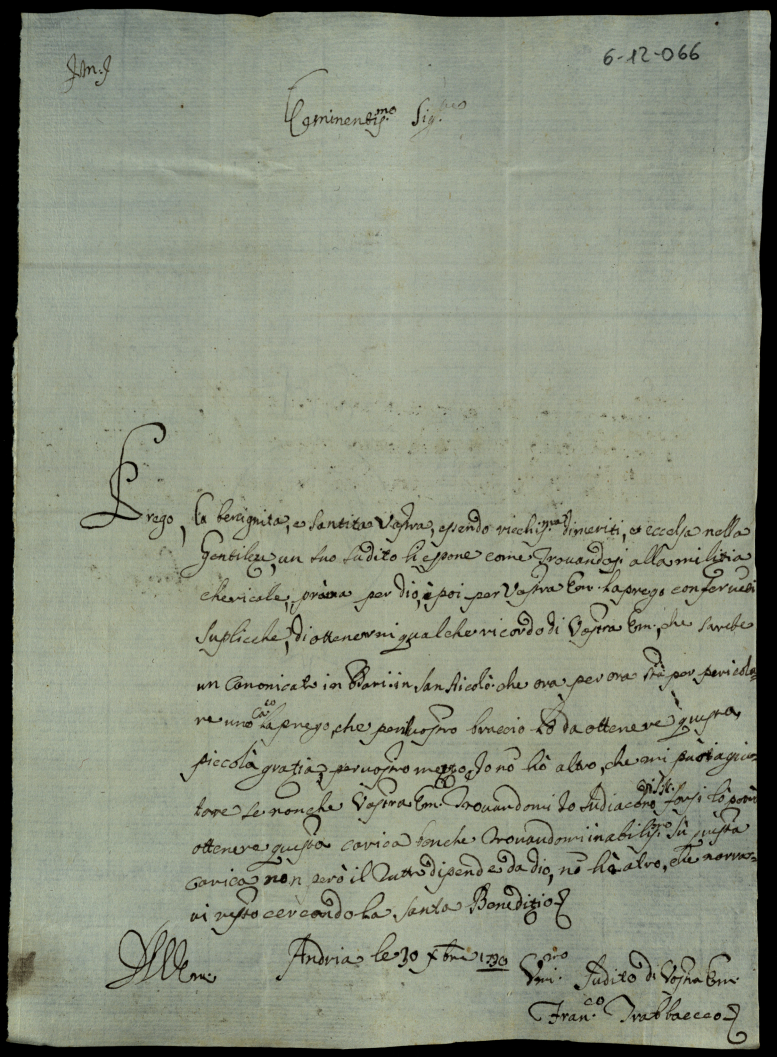 6-12-066
J.M.J
Eminentis.mo Sig.re
Prego, la benignita, e santita Vostra, essendo ricchis.ma di meriti, et eccelsa nella
Gentileza, un suo sudito li espone come trovandosi alla militia
chericale, prima per dio, e poi per Vostra Em: la prego con fervedi
suplicche, di ottenermi qualche ricordo di Vostra Em:, che sarebe
un Canonicato in Bari in San Nicolò che ora per ora stà per pericola-
re uno Ca.co la prego, che per vostro braccio hò da ottenere questa
piccola gratia, per vostro mezzo, Io nò hò altro, che mi può agiu-
tare se non che Vostra Em: trovandomi Io sudiacono forsi lò potrò
ottenere questa carica benche trovandomi inabilis.mo sù questa
carica non però il tutto dipende da dio, nò hò altro, che narrar-
vi resto cercando la santa Beneditio
Andria le 30 Xbre 1730
Em:
V.mi.mo Sudito di Vostra Em:
Fran.co Trabbacco